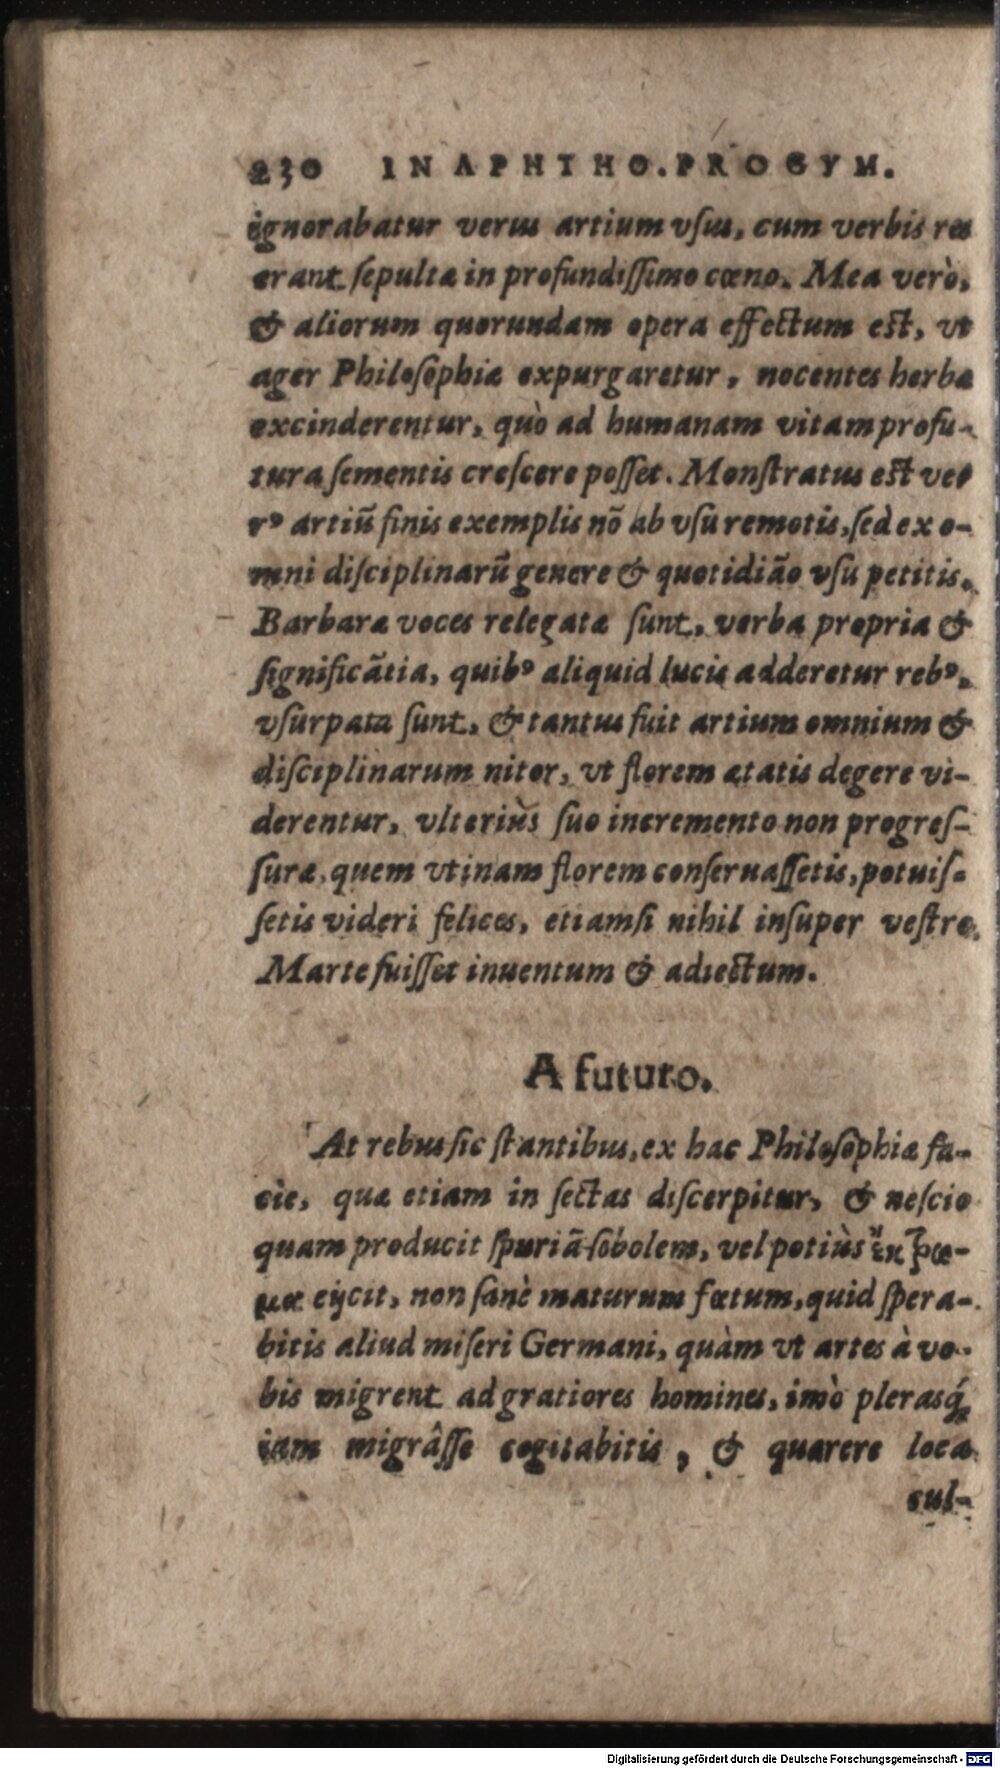 230 IN APHTHO. PROGYM.
ignorabatur verus artium vſus, cum verbis res
erant ſepultæ in profundiſſimo cœno. Mea verò,
& aliorum quorundam opera effectum est, vt
ager Philoſophiæ expurgaretur, nocentes herbæ
excinderentur, quò ad humanam vitam profu-
tura ſementis creſcere poſſet. Monſtratus est ve-
rꝰ artiũ finis exemplis nõ ab vſu remotis, ſed ex o-
mni diſciplinarũ genere & quotidião vſu petitis.
Barbaræ voces relegatæ ſunt, verba propria &
ſignificãtia, quibꝰ aliquid lucis adderetur rebꝰ,
vſurpata ſunt, & tantus fuit artium omnium &
diſciplinarum nitor, vt florem ætatis degere vi-
derentur, vlteriùs ſuo incremento non progreſ-
ſuræ, quem vtinam florem conſeruaſſetis, potuiſ-
ſetis videri felices, etiamſi nihil inſuper veſtro
Marte fuiſſet inuentum & adiectum.
A futuro.
At rebus ſic ſtantibus, ex hac Philoſophiæ fa-
cie, quæ etiam in ſectas diſcerpitur, & neſcio
quam producit ſpuriã ſobolem, vel potiùs
eijcit, non ſanè maturum fœtum, quid ſpera-
bitis aliud miſeri Germani, quàm vt artes à vo-
bis migrent ad gratiores homines, imò plerasq́;
iam migrâſſe cogitabitis, & quærere loca
cul-
Digitalisierung gefördert durch die Deutsche Forschungsgemeinschaft - DFG